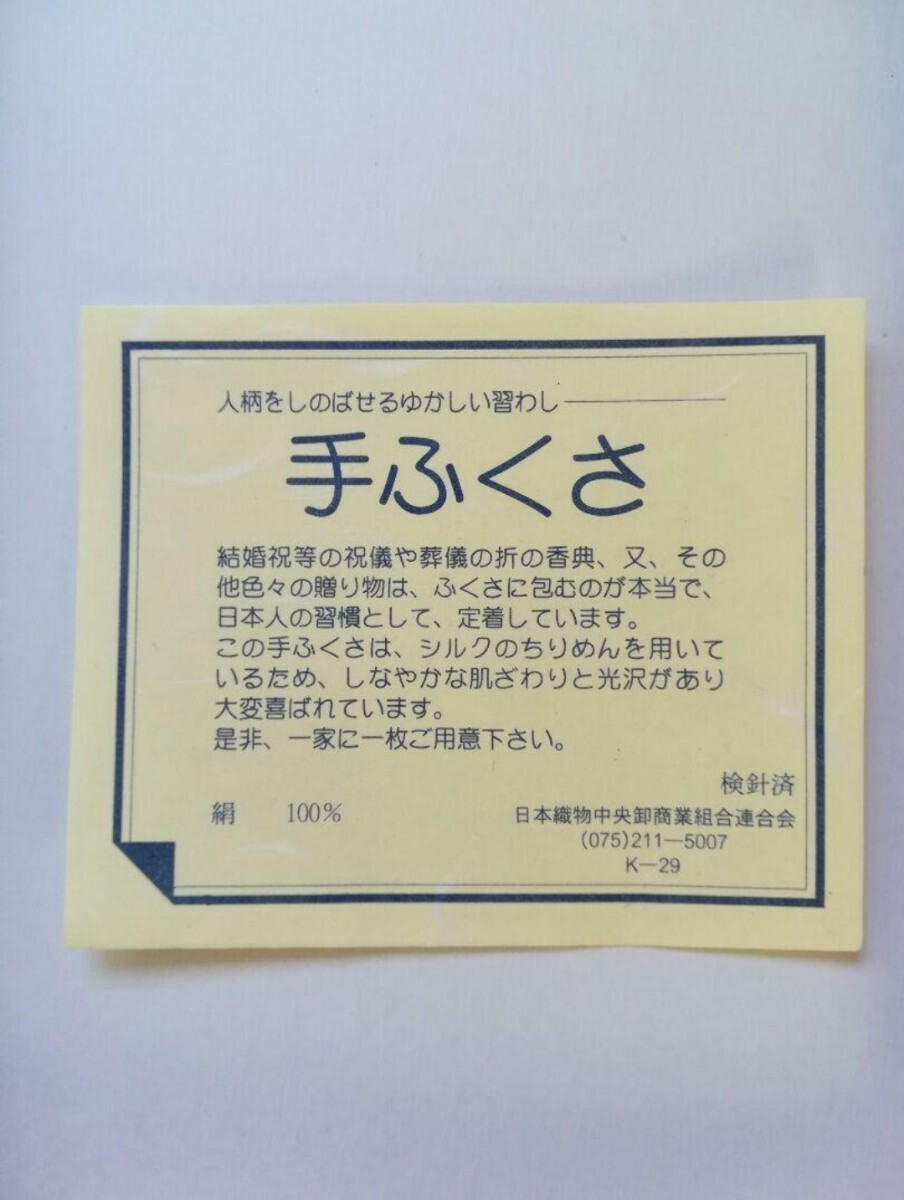 人柄をしのばせるゆかしい習わし――
手ふくさ
結婚祝等の祝儀や葬儀の折の香典、又、その
他色々の贈り物は、ふくさに包むのが本当で、
日本人の習慣として、定着しています。
この手ふくさは、シルクのちりめんを用いて
いるため、しなやかな肌ざわりと光沢があり
大変喜ばれています。
是非、一家に一枚ご用意下さい。
検針済
絹 100%
日本織物中央卸商業組合連合会
(075)211―5007
K―29